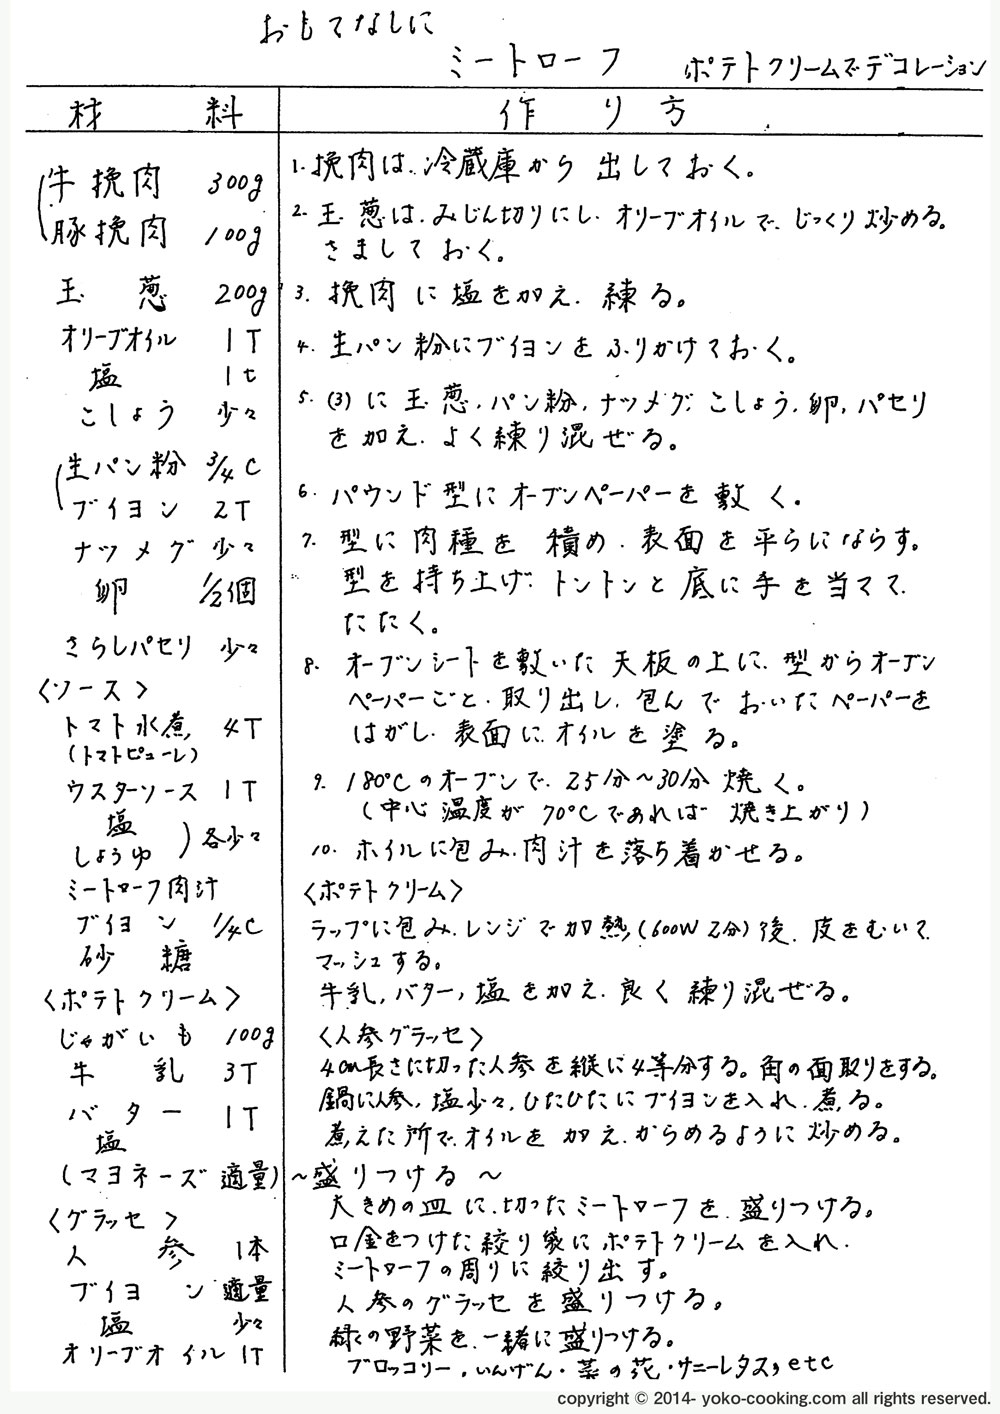 おもてなしに
ミートローフ ポテトクリームでデコレーション
材 料
牛挽肉 300g
豚挽肉 100g
玉 葱 200g
オリーブオイル 1T
塩 1t
こしょう 少々
生パン粉 3/4C
ブイヨン 2T
ナツメグ 少々
卵 1/2個
さらしパセリ 少々
〈ソース〉
トマト水煮 4T
(トマトピューレ)
ウスターソース 1T
塩
しょうゆ ) 各少々
ミートローフ肉汁
ブイヨン 1/4C
砂 糖
〈ポテトクリーム〉
じゃがいも 100g
牛 乳 3T
バター 1T
塩
(マヨネーズ 適量)
〈グラッセ〉
人 参 1本
ブイヨン 適量
塩 少々
オリーブオイル 1T
作 り 方
1. 挽肉は、冷蔵庫から出しておく。
2. 玉葱は、みじん切りにし、オリーブオイルで、じっくり炒める。
さましておく。
3. 挽肉に塩を加え、練る。
4. 生パン粉にブイヨンをふりかけておく。
5. (3)に玉葱、パン粉、ナツメグ、こしょう、卵、パセリ
を加え、よく練り混ぜる。
6. パウンド型にオーブンペーパーを敷く。
7. 型に肉種を積め、表面を平らにならす。
型を持ち上げ、トントンと底に手を当てて、
たたく。
8. オーブンシートを敷いた天板の上に、型からオーブン
ペーパーごと、取り出し、包んでおいたペーパーを
はがし、表面に、オイルを塗る。
9. 180℃のオーブンで、25分〜30分焼く。
(中心温度が70℃であれば焼き上がり)
10. ホイルに包み、肉汁を落ち着かせる。
〈ポテトクリーム〉
ラップに包み、レンジで加熱(600W 2分)後、皮をむいて、
マッシュする。
牛乳、バター、塩を加え、良く練り混ぜる。
〈人参グラッセ〉
4cm長さに切った人参を縦に4等分する。角の面取りをする。
鍋に人参、塩少々、ひたひたにブイヨンを入れ、煮る。
煮えた所で、オイルを加え、からめるように炒める。
〜盛りつける〜
大きめの皿に、切ったミートローフを、盛りつける。
口金をつけた絞り袋にポテトクリームを入れ、
ミートローフの周りに絞り出す。
人参のグラッセを盛りつける。
緑の野菜を、一緒に盛りつける。
ブロッコリー・いんげん・菜の花・サニーレタス, etc
copyright © 2014- yoko-cooking.com all rights reserved.